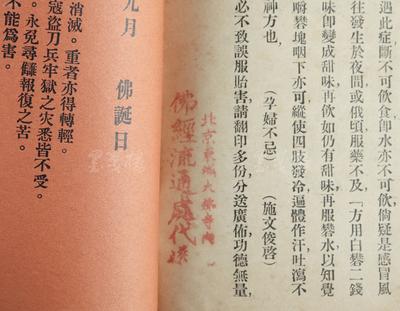 遇此症斷不可飲食卽水亦不可飲倘疑是感冒風
往發生於夜間或俄頃服藥不及「方用白礬二錢
味卽變成甜味再飲如仍有甜味再服礬水以知覺
嚼礬塊咽下亦可縱使四肢發冷遍體作汗吐瀉不
神方也 （孕婦不忌） （施文俊啓）
必不致誤服貽害請翻印多份分送廣佈功德無量
北京東城大佛寺內
佛經流通處代送
九月 佛誕日
消滅。重者亦得轉輕。
寇盜刀兵牢獄之灾悉皆不受。
。永免尋讎報復之苦。
不能爲害。